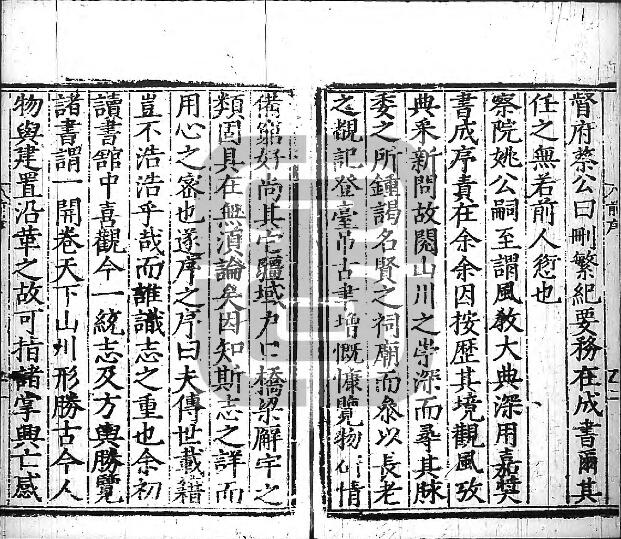 督府蔡公曰刪繁紀要務在成書爾其
任之無若前人愆也
察院姚公嗣至謂風教大典深用嘉奬
書成序責在余余因按歷其境觀風攷
典采新問故閱山川之崇深而尋其脉
委之所鍾謁名賢之祠廟而叅以長老
之覩記登臺弔古晝增慨慷覽物 情
備窮好尚其它疆域 口橋梁廨宇之
類固具在無湏論矣因知斯志之詳而
用心之宻也遂序之序曰夫傳世載籍
豈不浩浩乎哉而誰識志之重也余初
讀書舘中喜觀今一統志及方輿勝覽
諸書謂一開卷天下山川形勝古今人
物與建置沿革之故可指諸掌興亡感